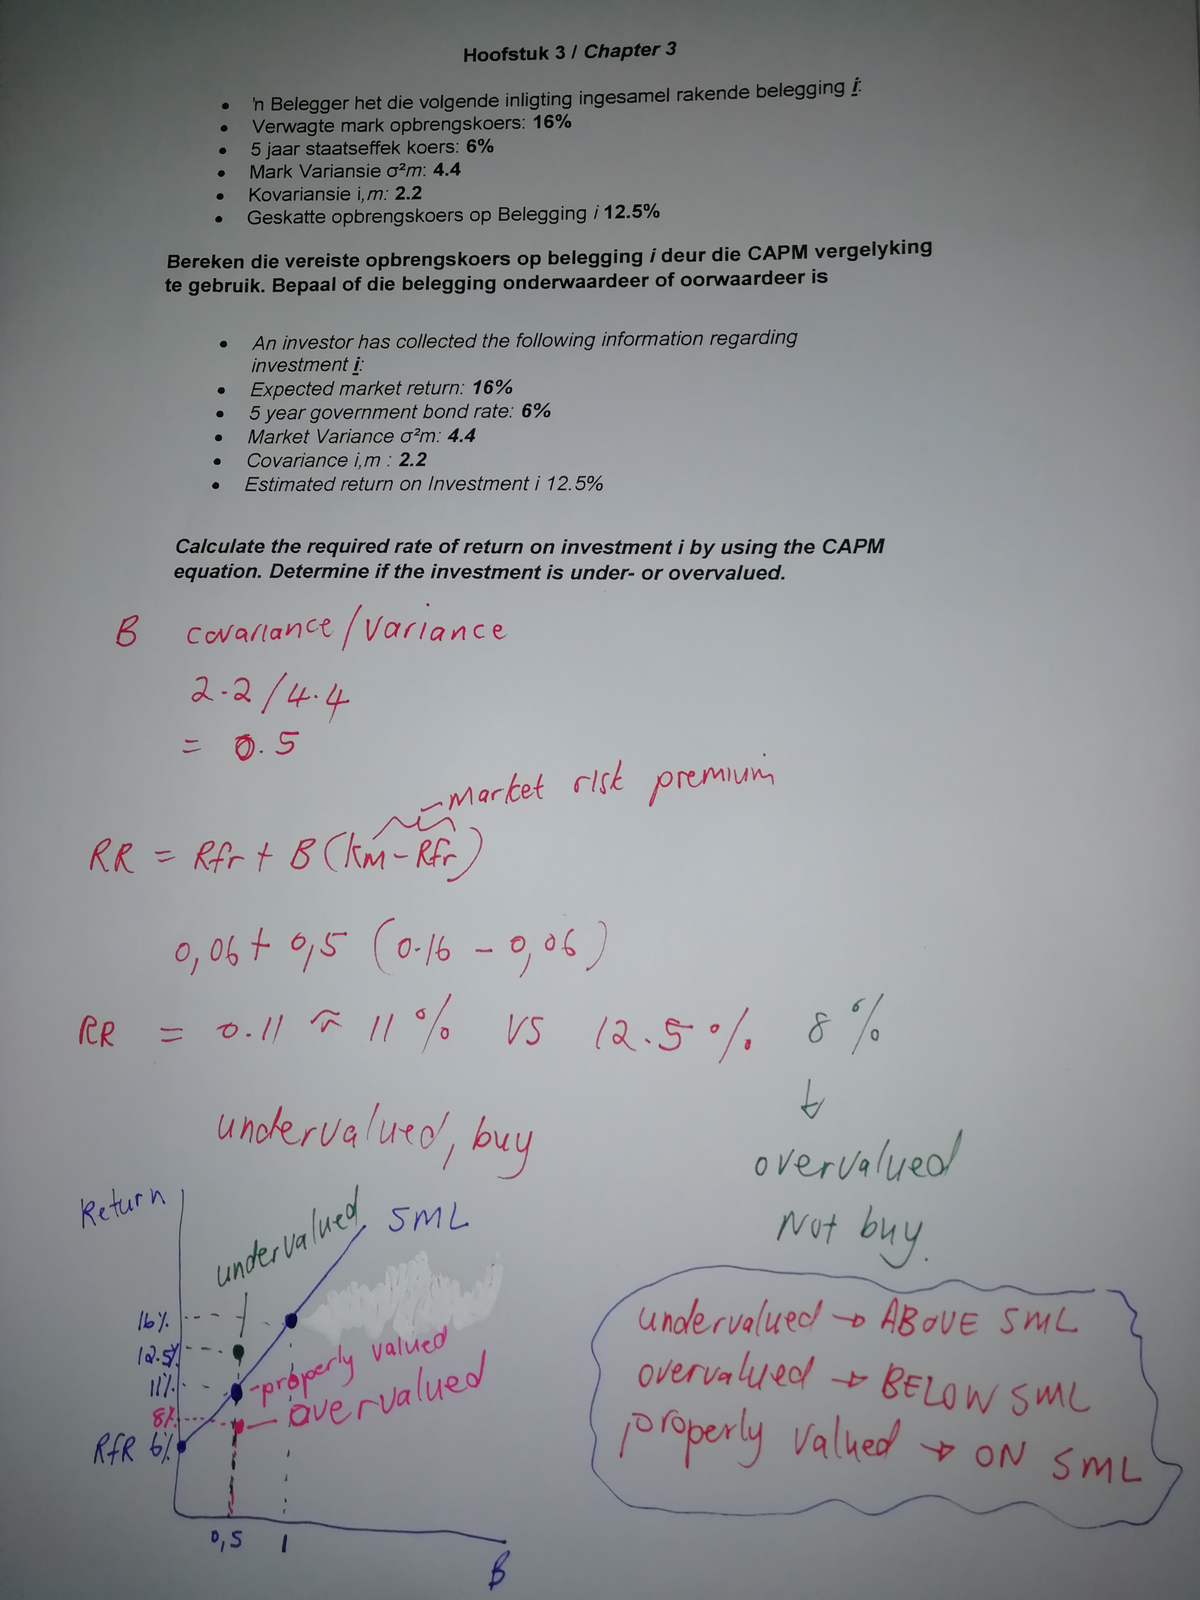 Hoofstuk 3 / Chapter 3
• 'n Belegger het die volgende inligting ingesamel rakende belegging i:
• Verwagte mark opbrengskoers: 16%
• 5 jaar staatseffek koers: 6%
• Mark Variansie σ²m: 4.4
• Kovariansie i,m: 2.2
• Geskatte opbrengskoers op Belegging i 12.5%
Bereken die vereiste opbrengskoers op belegging i deur die CAPM vergelyking
te gebruik. Bepaal of die belegging onderwaardeer of oorwaardeer is
• An investor has collected the following information regarding
investment i:
• Expected market return: 16%
• 5 year government bond rate: 6%
• Market Variance σ²m: 4.4
• Covariance i,m : 2.2
• Estimated return on Investment i 12.5%
Calculate the required rate of return on investment i by using the CAPM
equation. Determine if the investment is under- or overvalued.
B covariance/variance
2.2/4.4
= 0.5
market risk premium
RR = Rfr + B(km-Rfr)
0,06 + 0,5 (0.16 - 0,06)
RR = 0.11 ≈ 11% VS 12.5% 8%
overvalued
Not buy.
undervalued, buy
Return
undervalued
SML
16%
12.5%
11%
properly valued
8%
overvalued
RfR 6%
0,5 1
B
undervalued → ABOVE SML
overvalued → BELOW SML
properly valued → ON SML